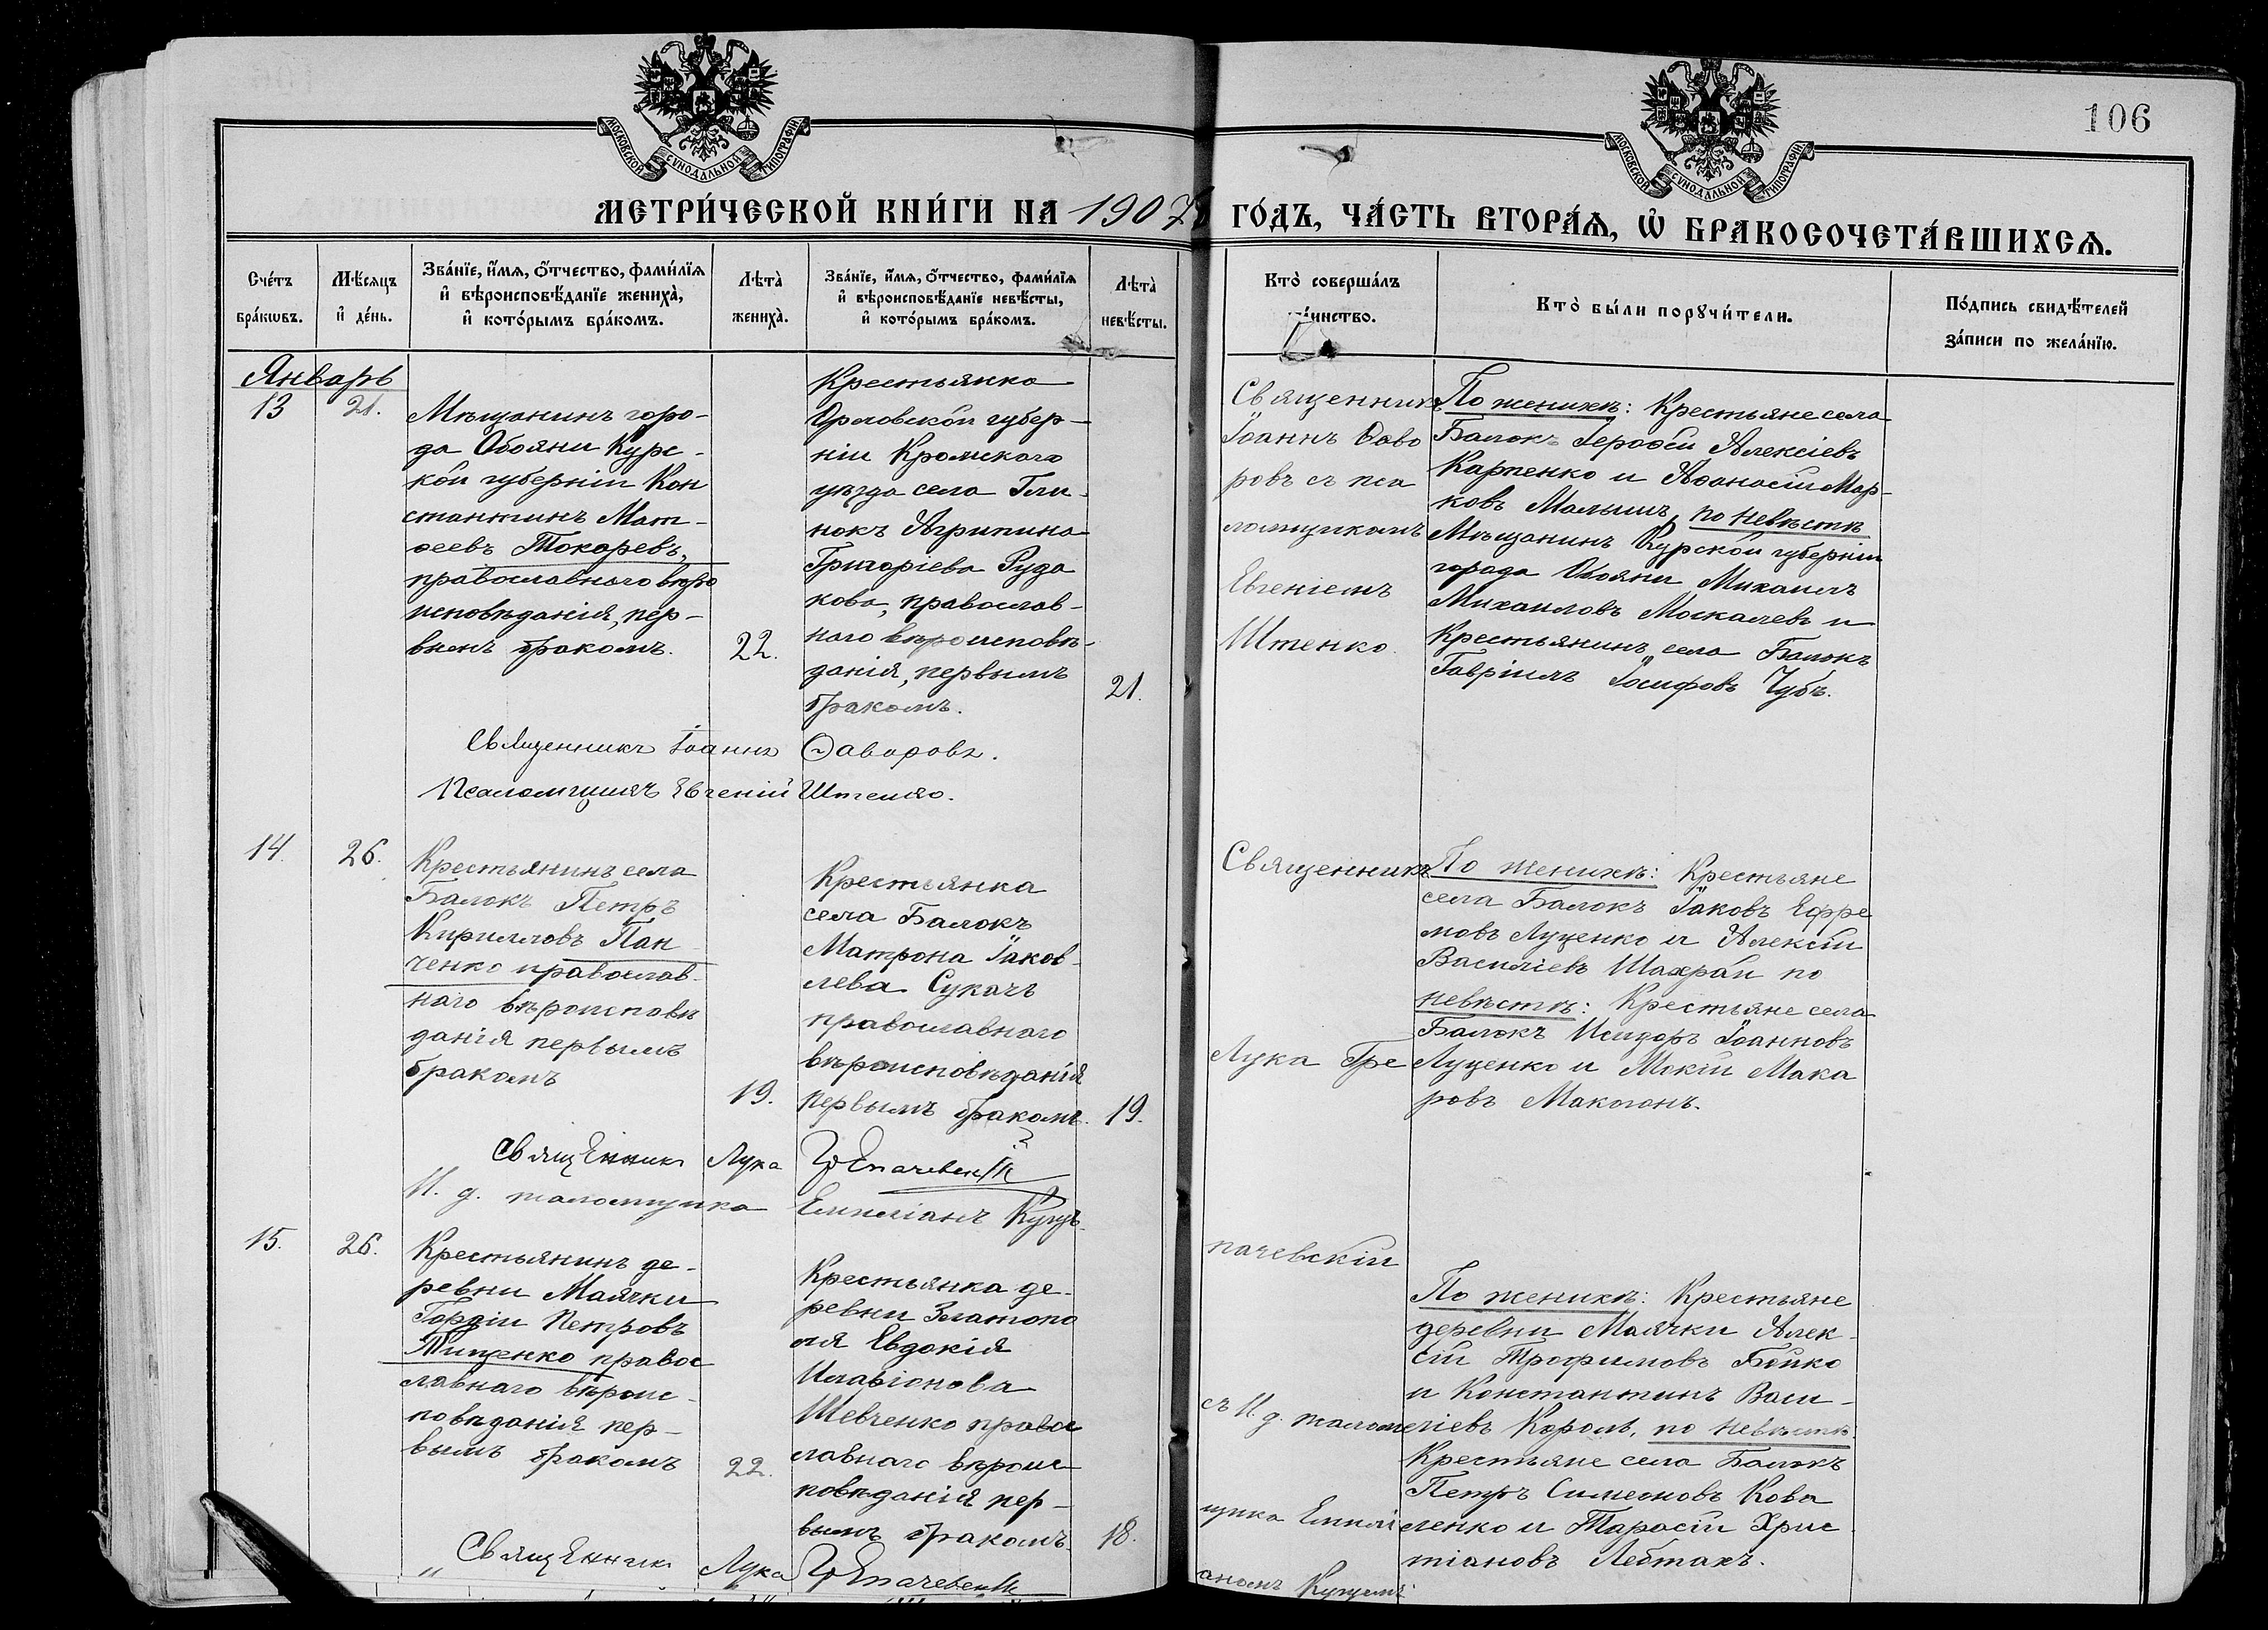 106
МОСКОВСКОЙ СѴНОДАЛЬНОЙ ТИПОГРАФІИ
МОСКОВСКОЙ СѴНОДАЛЬНОЙ ТИПОГРАФІИ
МЕТРИ́ЧЕСКОЙ КНИ́ГИ НА 1907й ГО́ДЪ, ЧА́СТЬ ВТОРА́Ѧ, Ѽ БРАКОСОЧЕТА́ВШИХСѦ.
Сче́тъ
бра́кѡвъ.
Мѣ́сяцъ
и҆ де́нь.
Зва́нїе, и҆́мѧ, ѻ҆́тчество, фами́лїѧ
и҆ вѣроисповѣ́данїе жениха̀,
и҆ кото́рымъ бра́комъ.
Лѣта̀
жениха̀.
Зва́нїе, и҆́мѧ, ѻ҆́тчество, фами́лїѧ
и҆ вѣроисповѣ́данїе невѣ́сты,
и҆ кото́рымъ бра́комъ.
Лѣта̀
невѣ́сты.
Кто̀ соверша́лъ
та́инство.
Кто̀ бы́ли порꙋчи́тели.
По́дпись свидѣ́телей
за́писи по жела́нїю.
Январь
13
21.
Мѣщанинъ горо-
да Обояни Курс-
кой губерніи Кон
стантинъ Мат-
ѳеевъ Токаревъ,
православнаго вѣро
исповѣданія, пер-
вымъ бракомъ.
22.
Крестьянка
Орловской губер-
ніи Кромскаго
уѣзда села Гли-
нокъ Агрипина
Григоріева Руда
кова, православ-
наго вѣроисповѣ-
данія, первымъ
бракомъ.
21.
Священникъ
Іоаннъ Ѳаво
ровъ съ пса
ломщикомъ
Евгеніемъ
Штенко.
По женихѣ: Крестьяне села
Балокъ Іероѳей Алексіевъ
Карпенко и Аѳанасій Мар-
ковъ Малышъ, по невѣстѣ
Мѣщанинъ Курской губерніи
города Обояни Михаилъ
Михаиловъ Москалевъ и
Крестьянинъ села Балокъ
Гавріилъ Іосифовъ Чубъ.
Священникъ Іоаннъ Ѳаворовъ.
Псаломщикъ Евгеній Штенко.
14.
26.
Крестьянинъ села
Балокъ Петръ
Кирилловъ Пан
ченко православ-
наго вѣроисповѣ
данія первымъ
бракомъ
19.
Крестьянка
села Балокъ
Матрона Іаков-
лева Сукачъ
православнаго
вѣроисповѣданія
первымъ бракомъ.
19.
Священникъ
Лука Гре
пачевскій
съ И. д. псалом
щика Емилі
аномъ Куцумъ
По женихѣ: Крестьяне
села Балокъ Іаковъ Ефре
мовъ Луценко и Алексій
Василіевъ Шахрай по
невѣстѣ: Крестьяне села
Балокъ Исидоръ Іоанновъ
Луценко и Мокій Мака
ровъ Макогонъ.
Священникъ Лука Грепачевскій
И. д. псаломщика Емиліанъ Куцъ.
15.
26.
Крестьянинъ де-
ревни Маячки
Гордій Петровъ
Тищенко правос
лавнаго вѣроис-
повѣданія пер-
вымъ бракомъ
22.
Крестьянка де-
ревни Златопо
ля Евдокія
Иларіонова
Шевченко правос
лавнаго вѣроис
повѣданія пер-
вымъ бракомъ.
18.
По женихѣ: Крестьяне
деревни Маячки Алек-
сій Трофимовъ Бойко
и Константинъ Васи-
ліевъ Король, по невѣстѣ:
Крестьяне села Балокъ
Петръ Симеоновъ Кова
ленко и Тарасій Хрис
тіановъ
Священникъ Лука Грепачевскій